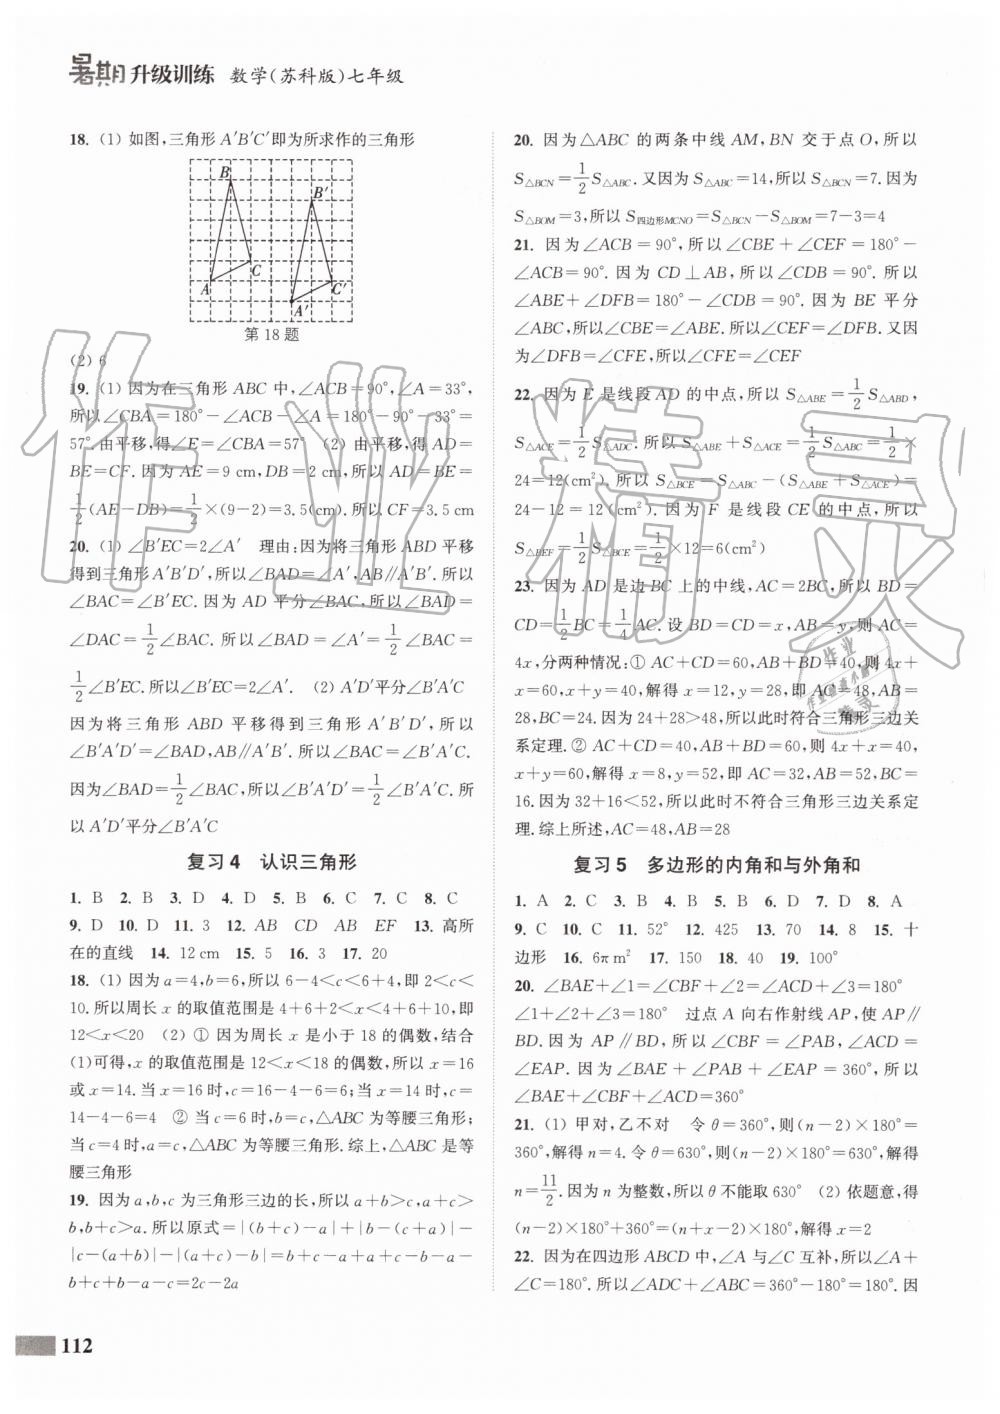 暑期升级训练 数学(苏科版)七年级
18. (1) 如图,三角形 A′B′C′即为所求作的三角形
B
B′
C
A
C′
A′
第 18 题
(2) 6
19. (1) 因为在三角形 ABC 中,∠ACB=90°,∠A=33°,
所以∠CBA=180°-∠ACB-∠A=180°-90°-33°=
57°.由平移,得∠E=∠CBA=57° (2) 由平移,得 AD=
BE=CF.因为 AE=9 cm,DB=2 cm,所以 AD=BE=
1/2(AE-DB)=1/2×(9-2)=3.5(cm).所以 CF=3.5 cm
20. (1) ∠B′EC=2∠A′ 理由:因为将三角形 ABD 平移
得到三角形 A′B′D′,所以∠BAD=∠A′,AB∥A′B′.所以
∠BAC=∠B′EC.因为 AD 平分∠BAC,所以∠BAD=
∠DAC=1/2∠BAC.所以∠BAD=∠A′=1/2∠BAC=
1/2∠B′EC.所以∠B′EC=2∠A′. (2) A′D′平分∠B′A′C
因为将三角形 ABD 平移得到三角形 A′B′D′,所以
∠B′A′D′=∠BAD,AB∥A′B′.所以∠BAC=∠B′A′C.
因为∠BAD=1/2∠BAC,所以∠B′A′D′=1/2∠B′A′C.所
以 A′D′平分∠B′A′C
复习 4 认识三角形
1. B 2. B 3. D 4. D 5. B 6. C 7. C 8. C
9. D 10. D 11. 3 12. AB CD AB EF 13. 高所
在的直线 14. 12 cm 15. 5 16. 3 17. 20
18. (1) 因为 a=4,b=6,所以 6-4<c<6+4,即 2<c<
10.所以周长 x 的取值范围是 4+6+2<x<4+6+10,即
12<x<20 (2) ① 因为周长 x 是小于 18 的偶数,结合
(1)可得,x 的取值范围是 12<x<18 的偶数,所以 x=16
或 x=14.当 x=16 时,c=16-4-6=6;当 x=14 时,c=
14-4-6=4 ② 当 c=6 时,b=c,△ABC 为等腰三角形;
当 c=4 时,a=c,△ABC 为等腰三角形.综上,△ABC 是等
腰三角形
19. 因为 a,b,c 为三角形三边的长,所以 a+b>c,a+c>
b,b+c>a.所以原式=|(b+c)-a|+|b-(c+a)|-
|c-(a+b)|-|(a+c)-b|=b+c-a+a+c-b-a-
b+c+b-a-c=2c-2a
20. 因为△ABC 的两条中线 AM,BN 交于点 O,所以
S△BCN=1/2S△ABC.又因为 S△ABC=14,所以 S△BCN=7.因为
S△BOM=3,所以 S四边形MCNO=S△BCN-S△BOM=7-3=4
21. 因为∠ACB=90°,所以∠CBE+∠CEF=180°-
∠ACB=90°.因为 CD⊥AB,所以∠CDB=90°.所以
∠ABE+∠DFB=180°-∠CDB=90°.因为 BE 平分
∠ABC,所以∠CBE=∠ABE.所以∠CEF=∠DFB.又因
为∠DFB=∠CFE,所以∠CFE=∠CEF
22. 因为 E 是线段 AD 的中点,所以 S△ABE=1/2S△ABD,
S△ACE=1/2S△ADC.所以 S△ABE+S△ACE=1/2S△ABC=1/2×
24=12(cm²).所以 S△BCE=S△ABC-(S△ABE+S△ACE)=
24-12=12(cm²).因为 F 是线段 CE 的中点,所以
S△BEF=1/2S△BCE=1/2×12=6(cm²)
23. 因为 AD 是边 BC 上的中线,AC=2BC,所以 BD=
CD=1/2BC=1/4AC.设 BD=CD=x,AB=y,则 AC=
4x,分两种情况:① AC+CD=60,AB+BD=40,则 4x+
x=60,x+y=40,解得 x=12,y=28,即 AC=48,AB=
28,BC=24.因为 24+28>48,所以此时符合三角形三边关
系定理.② AC+CD=40,AB+BD=60,则 4x+x=40,
x+y=60,解得 x=8,y=52,即 AC=32,AB=52,BC=
16.因为 32+16<52,所以此时不符合三角形三边关系定
理.综上所述,AC=48,AB=28
复习 5 多边形的内角和与外角和
1. A 2. C 3. B 4. B 5. B 6. D 7. D 8. A
9. C 10. C 11. 52° 12. 425 13. 70 14. 8 15. 十
边形 16. 6π m² 17. 150 18. 40 19. 100°
20. ∠BAE+∠1=∠CBF+∠2=∠ACD+∠3=180°
∠1+∠2+∠3=180° 过点 A 向右作射线 AP,使 AP∥
BD.因为 AP∥BD,所以∠CBF=∠PAB,∠ACD=
∠EAP.因为∠BAE+∠PAB+∠EAP=360°,所以
∠BAE+∠CBF+∠ACD=360°
21. (1) 甲对,乙不对 令 θ=360°,则(n-2)×180°=
360°,解得 n=4.令 θ=630°,则(n-2)×180°=630°,解得
n=11/2.因为 n 为整数,所以 θ 不能取 630° (2) 依题意,得
(n-2)×180°+360°=(n+x-2)×180°,解得 x=2
22. 因为在四边形 ABCD 中,∠A 与∠C 互补,所以∠A+
∠C=180°.所以∠ADC+∠ABC=360°-180°=180°.因
112
作业精灵